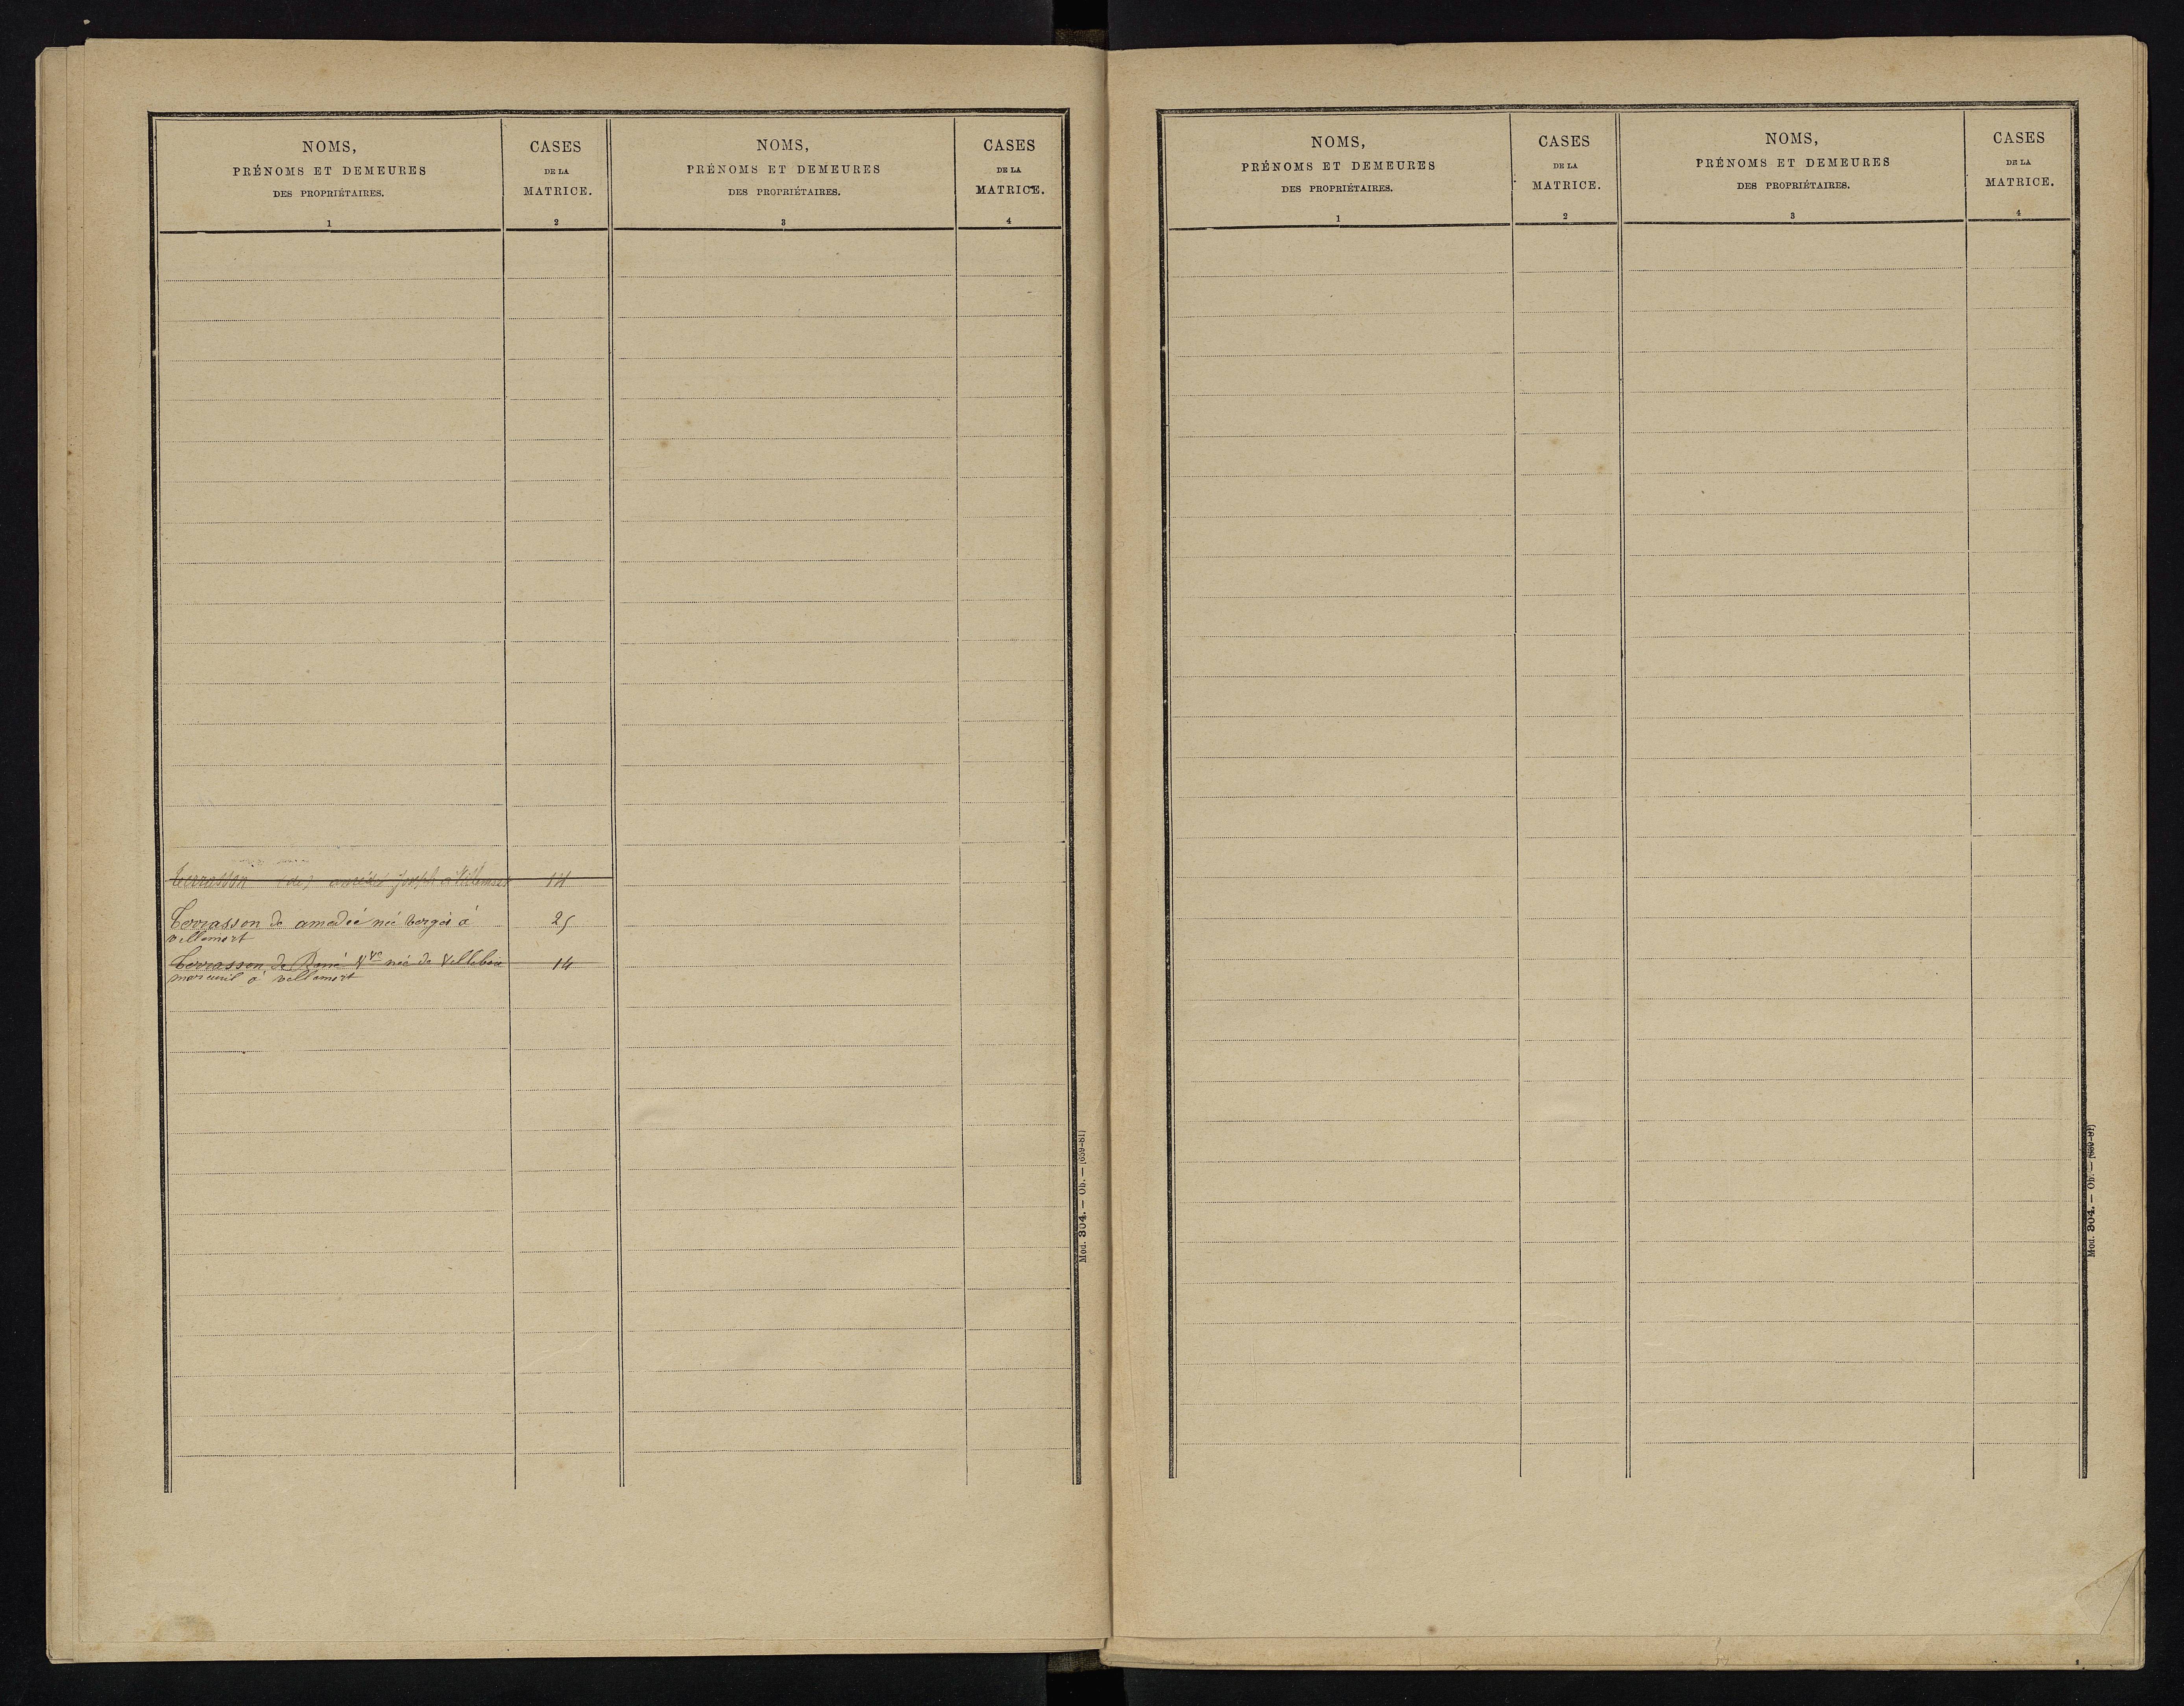 NOMS,
PRÉNOMS ET DEMEURES
DES PROPRIÉTAIRES.
1
CASES
DE LA
MATRICE.
2
NOMS,
PRÉNOMS ET DEMEURES
DES PROPRIÉTAIRES.
3
CASES
DE LA
MATRICE.
4
Terrasson (de) amédé Joseph à 14
Terrasson de amedeé neé berges à 25
villemort
Terrasson de René Vve neé de Villebois 14
mareuil à villemort
Mod. 304. — Ob. — (659-81)
NOMS,
PRÉNOMS ET DEMEURES
DES PROPRIÉTAIRES.
1
CASES
DE LA
MATRICE.
2
NOMS,
PRÉNOMS ET DEMEURES
DES PROPRIÉTAIRES.
3
CASES
DE LA
MATRICE.
4
Mod. 304. — Ob. — (659-81)